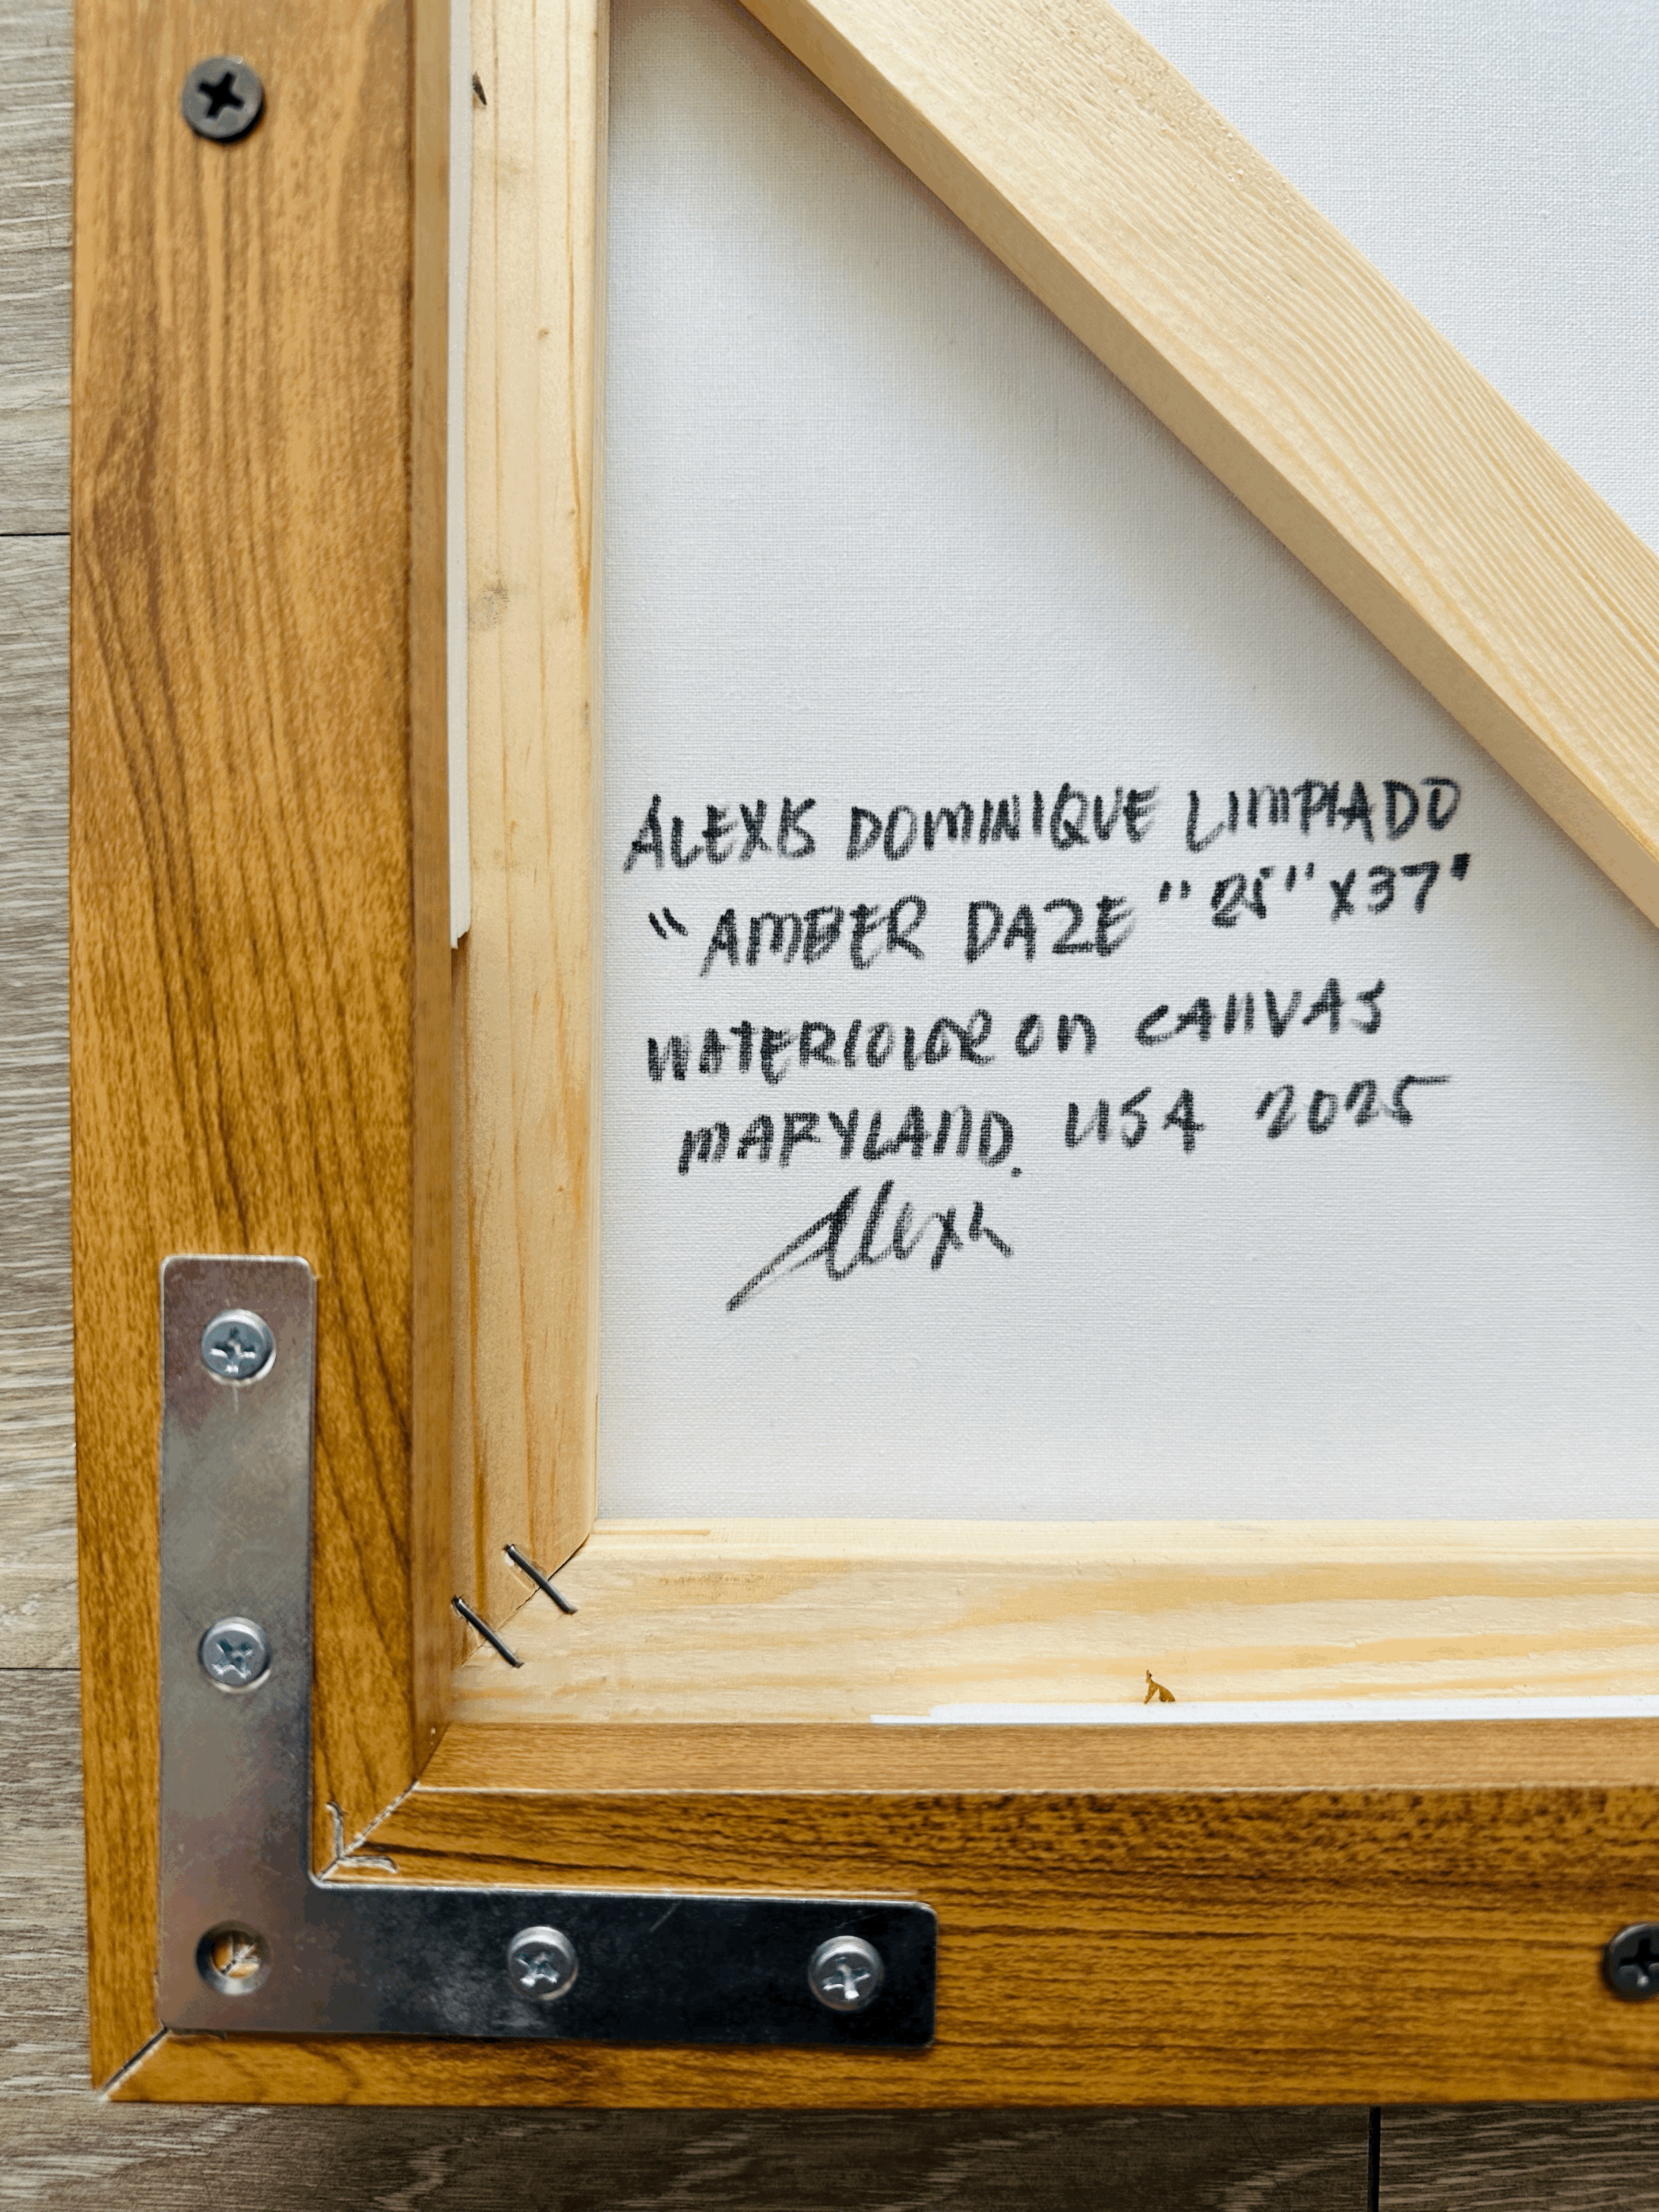 ALEXIS DOMINIQUE LIMPIADO
"AMBER DAZE" 25" X 37"
WATERCOLOR ON CANVAS
MARYLAND. USA 2025
Alexis